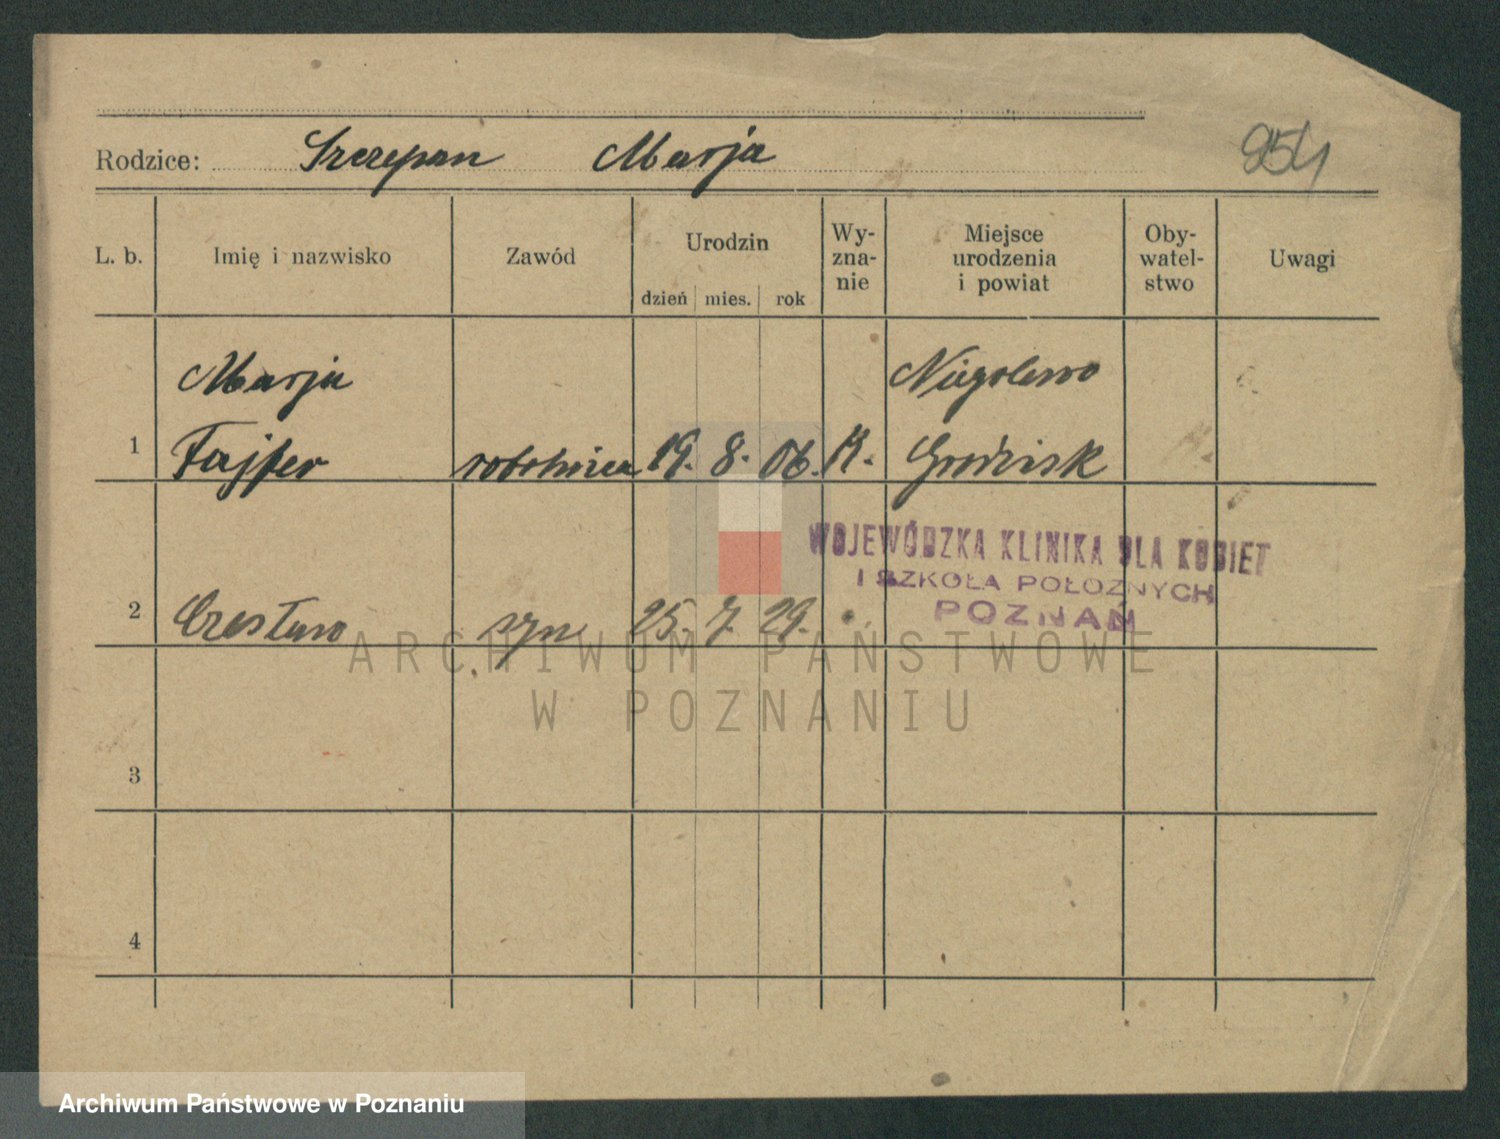 Rodzice: Szczepan Marja 954
L. b. Imię i nazwisko Zawód Urodzin dzień mies. rok Wy-zna-nie Miejsce urodzenia i powiat Oby-watel-stwo Uwagi
Marja Niegolewo
1 Fajfer robotnica 19. 8. 06. K. Grodzisk
WOJEWÓDZKA KLINIKA DLA KOBIET
I SZKOŁA POŁOŻNYCH
POZNAŃ
2 Czesław syn 25. 7. 29.
ARCHIWUM PAŃSTWOWE
W POZNANIU
3
4
Archiwum Państwowe w Poznaniu